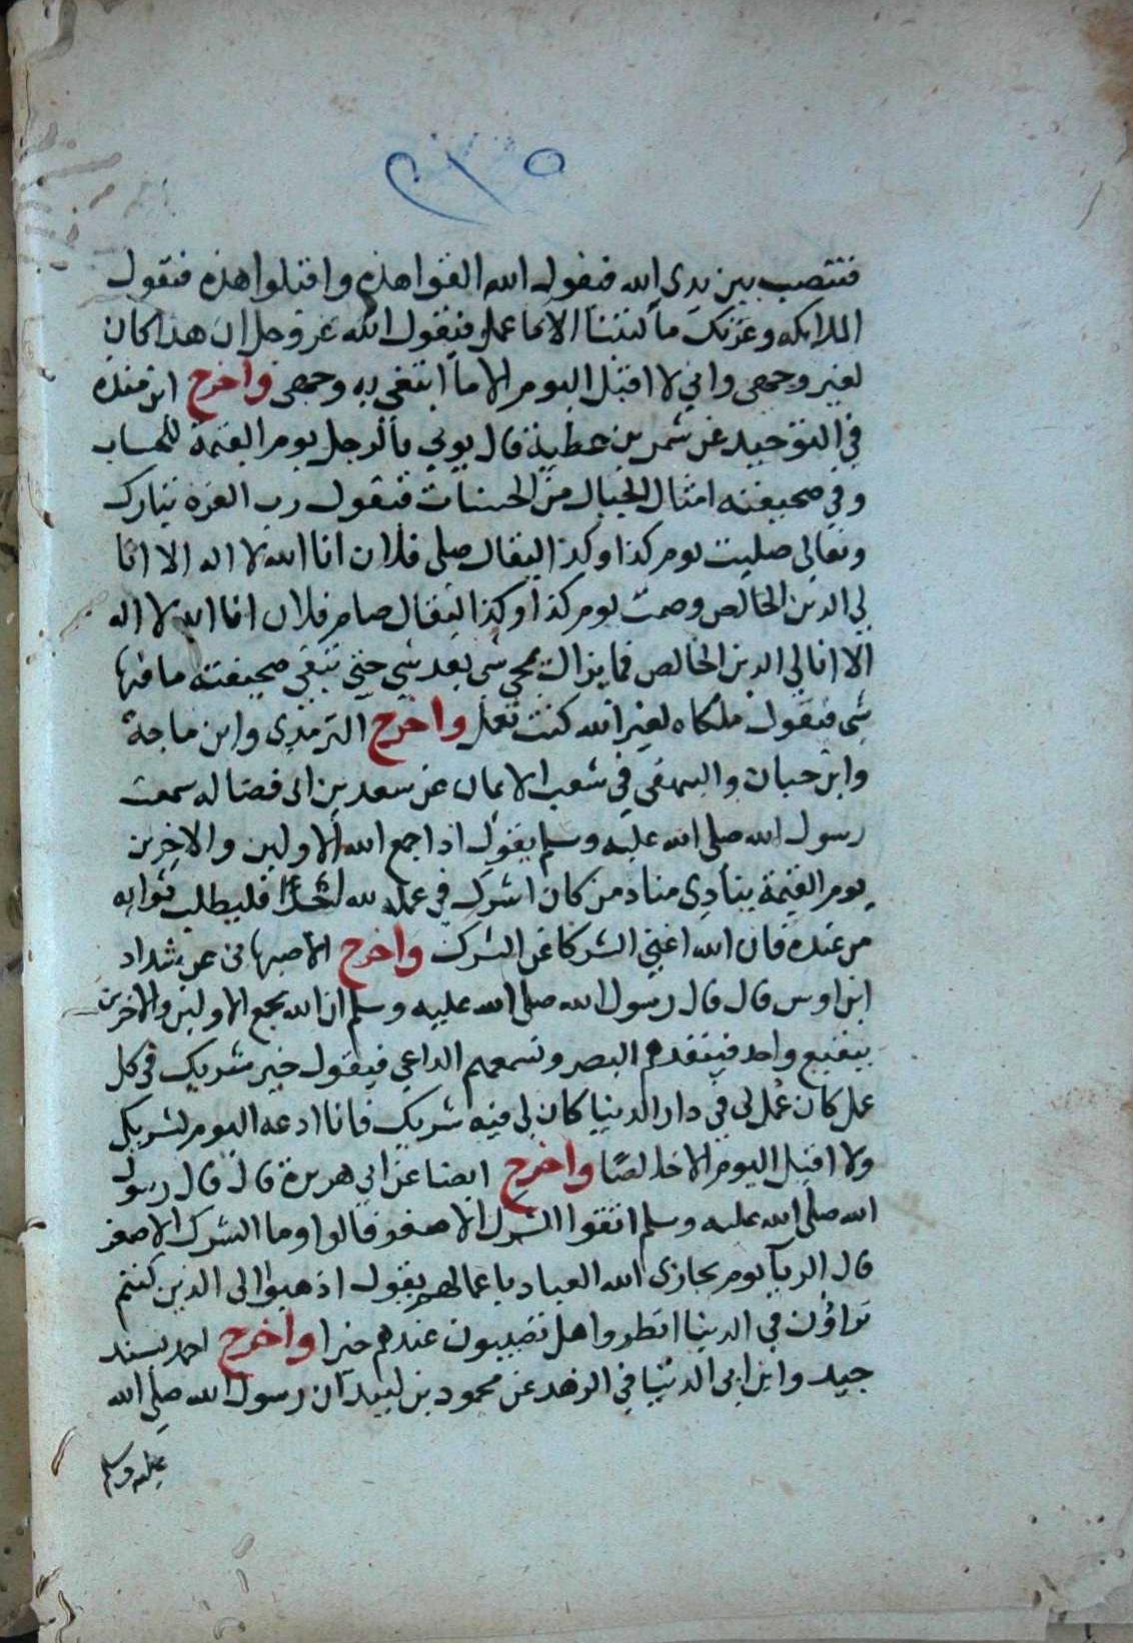 ٢١٥
فتنصب بين يدى الله فيقول الله القوا هذه واقبلوا هذه فتقول
الملايكه وعزتك ما كتبنا الا ما عمل فيقول الله عز وجل ان هذا كان
لغير وجهى وانى لا اقبل اليوم الا ما ابتغى به وجهى واخرج ابن منده
في التوحيد عن شمر بن عطية قال يوتي بالرجل يوم القيمة للحساب
وفي صحيفته امثال الجبال من الحسنات فيقول رب العزه تبارك
وتعالى صليت يوم كذا وكذا ليقال صلى فلان انا الله لا اله الا انا
لي الدين الخالص وصمت يوم كذا وكذا ليقال صام فلان انا الله لا اله
الا انا لي الدين الخالص فما يزال يمحي شى بعد شي حتى تبقي صحيفته ما فيها
شي فيقول ملكاه لغير الله كنت تعمل واخرج الترمذى وابن ماجة
وابن حبان والبيهقى في شعب الايمان عن سعد بن ابى فضاله سمعت
رسول الله صلى الله عليه وسلم يقول اذا جمع الله الاولين والاخرين
يوم القيمة ينادى مناد من كان اشرك في عمله لله احدا فليطلب ثوابه
من عنده فان الله اغنى الشركا عن الشرك واخرج الاصبهانى عن شداد
ابن اوس قال قال رسول الله صلى الله عليه وسلم ان الله يجمع الاولين والاخرين
ببقيع واحد فينفذهم البصر وتسمعهم الداعي فيقول خير شريك في كل
عمل كان عمل لي في دار الدنيا كان لي فيه شريك فانا ادعه اليوم لشريكى
ولا اقبل اليوم الا خالصا واخرج ايضا عن ابي هريرة قال قال رسول
الله صلى الله عليه وسلم اتقوا الشرك الاصغر قالوا وما الشرك الاصغر
قال الريآ يوم يجازى الله العباد باعمالهم يقول اذهبوا الى الذين كنتم
تراؤن في الدنيا انظروا هل تصيبون عندهم خيرا واخرج احمد بسند
جيد وابن ابى الدنيا في الزهد عن محمود بن لبيد ان رسول الله صلى الله
عليه وسلم